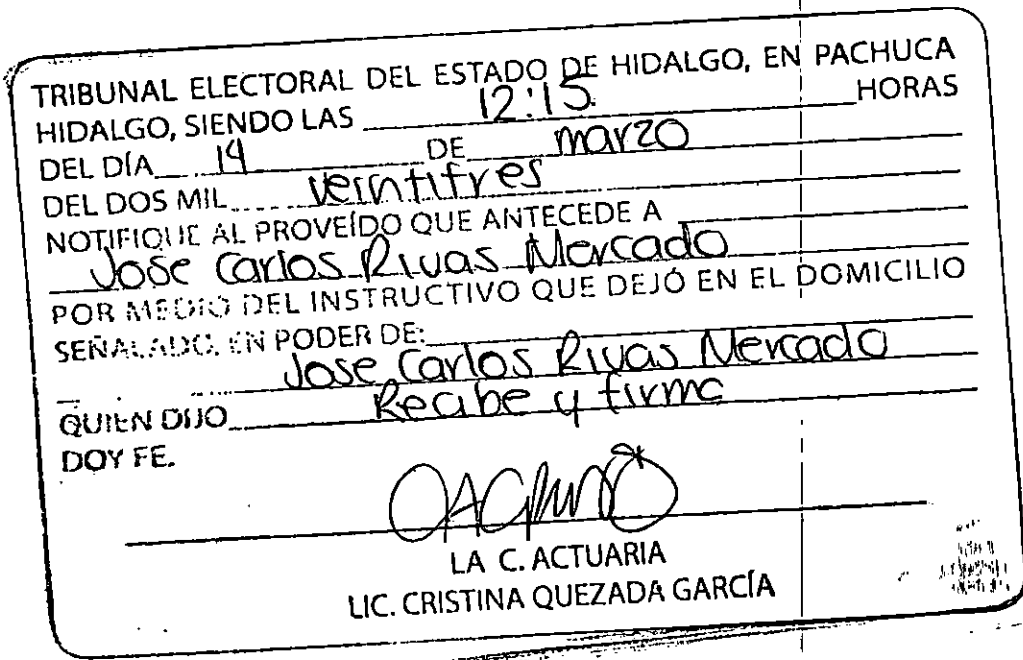 TRIBUNAL ELECTORAL DEL ESTADO DE HIDALGO, EN PACHUCA
HIDALGO, SIENDO LAS 12:15 HORAS
DEL DÍA 14 DE marzo
DEL DOS MIL veintitres
NOTIFIQUE AL PROVEÍDO QUE ANTECEDE A
Jose Carlos Rivas Mercado
POR MEDIO DEL INSTRUCTIVO QUE DEJÓ EN EL DOMICILIO
SEÑALADO, EN PODER DE:
Jose Carlos Rivas Mercado
QUIEN DIJO Recibe y firma
DOY FE.
LA C. ACTUARIA
LIC. CRISTINA QUEZADA GARCÍA